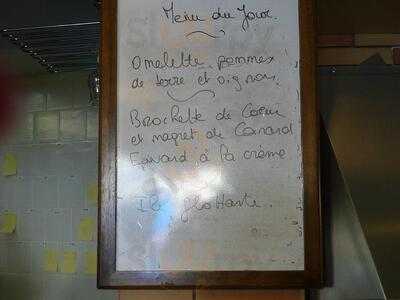 Menu du Jour.
Omelette pommes
de terre et oignons
Brochette de Coeur
et magret de Canard
Epinard à la crème
Ile flottante.